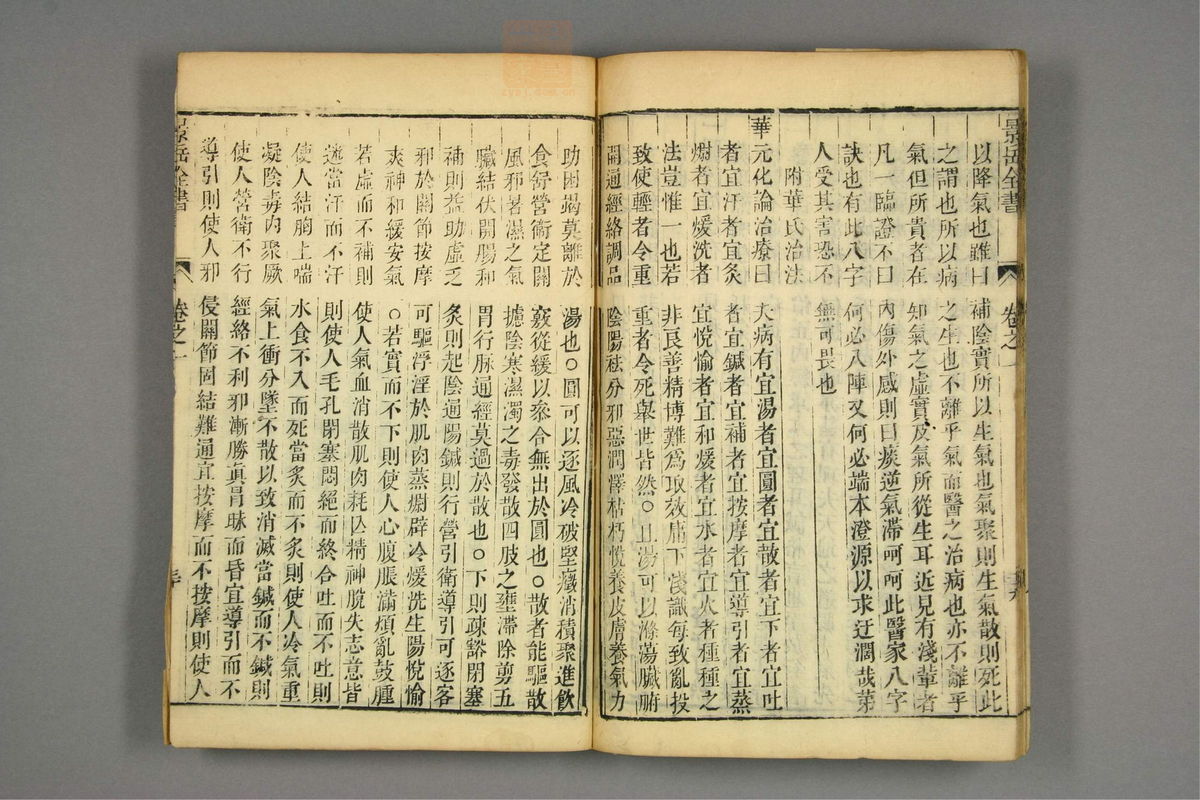 景岳全書
卷之一
以降氣也雖曰補陰實所以生氣也氣聚則生氣散則死此
之謂也所以病之生也不離乎氣而醫之治病也亦不離乎
氣但所貴者在知氣之虛實及氣所從生耳近見有淺輩者
凡一臨證不曰內傷外感則曰痰逆氣滯呵呵此醫家八字
訣也有此八字何必八陣又何必端本澄源以求迂濶哉第
人受其害恐不無可畏也
附華氏治法
華元化論治療曰夫病有宜湯者宜圓者宜散者宜下者宜吐
者宜汗者宜灸者宜鍼者宜補者宜按摩者宜導引者宜蒸
熨者宜煖洗者宜悅愉者宜和煖者宜水者宜火者種種之
法豈惟一也若非良善精博難爲取效庸下淺識每致亂投
致使輕者令重重者令死舉世皆然○且湯可以滌蕩臟腑
開通經絡調品陰陽袪分邪惡潤澤枯朽悅養皮膚養氣力
助困竭莫離於湯也○圓可以逐風冷破堅癥消積聚進飲
食舒營衞定關竅從緩以參合無出於圓也○散者能驅散
風邪暑濕之氣攄陰寒濕濁之毒發散四肢之壅滯除剪五
臟結伏開腸和胃行脉通經莫過於散也○下則疎豁閉塞
補則益助虛乏灸則起陰通陽鍼則行營引衞導引可逐客
邪於關節按摩可驅浮淫於肌肉蒸熨辟冷煖洗生陽悅愉
爽神和緩安氣○若實而不下則使人心腹脹滿煩亂鼓腫
若虛而不補則使人氣血消散肌肉耗亾精神脫失志意皆
迷當汗而不汗則使人毛孔閉塞悶絕而終合吐而不吐則
使人結胸上喘水食不入而死當灸而不灸則使人冷氣重
凝陰毒內聚厥氣上衝分墜不散以致消滅當鍼而不鍼則
使人營衞不行經絡不利邪漸勝眞冐昧而昏宜導引而不
導引則使人邪侵關節固結難通宜按摩而不按摩則使人
景岳全書
卷之一